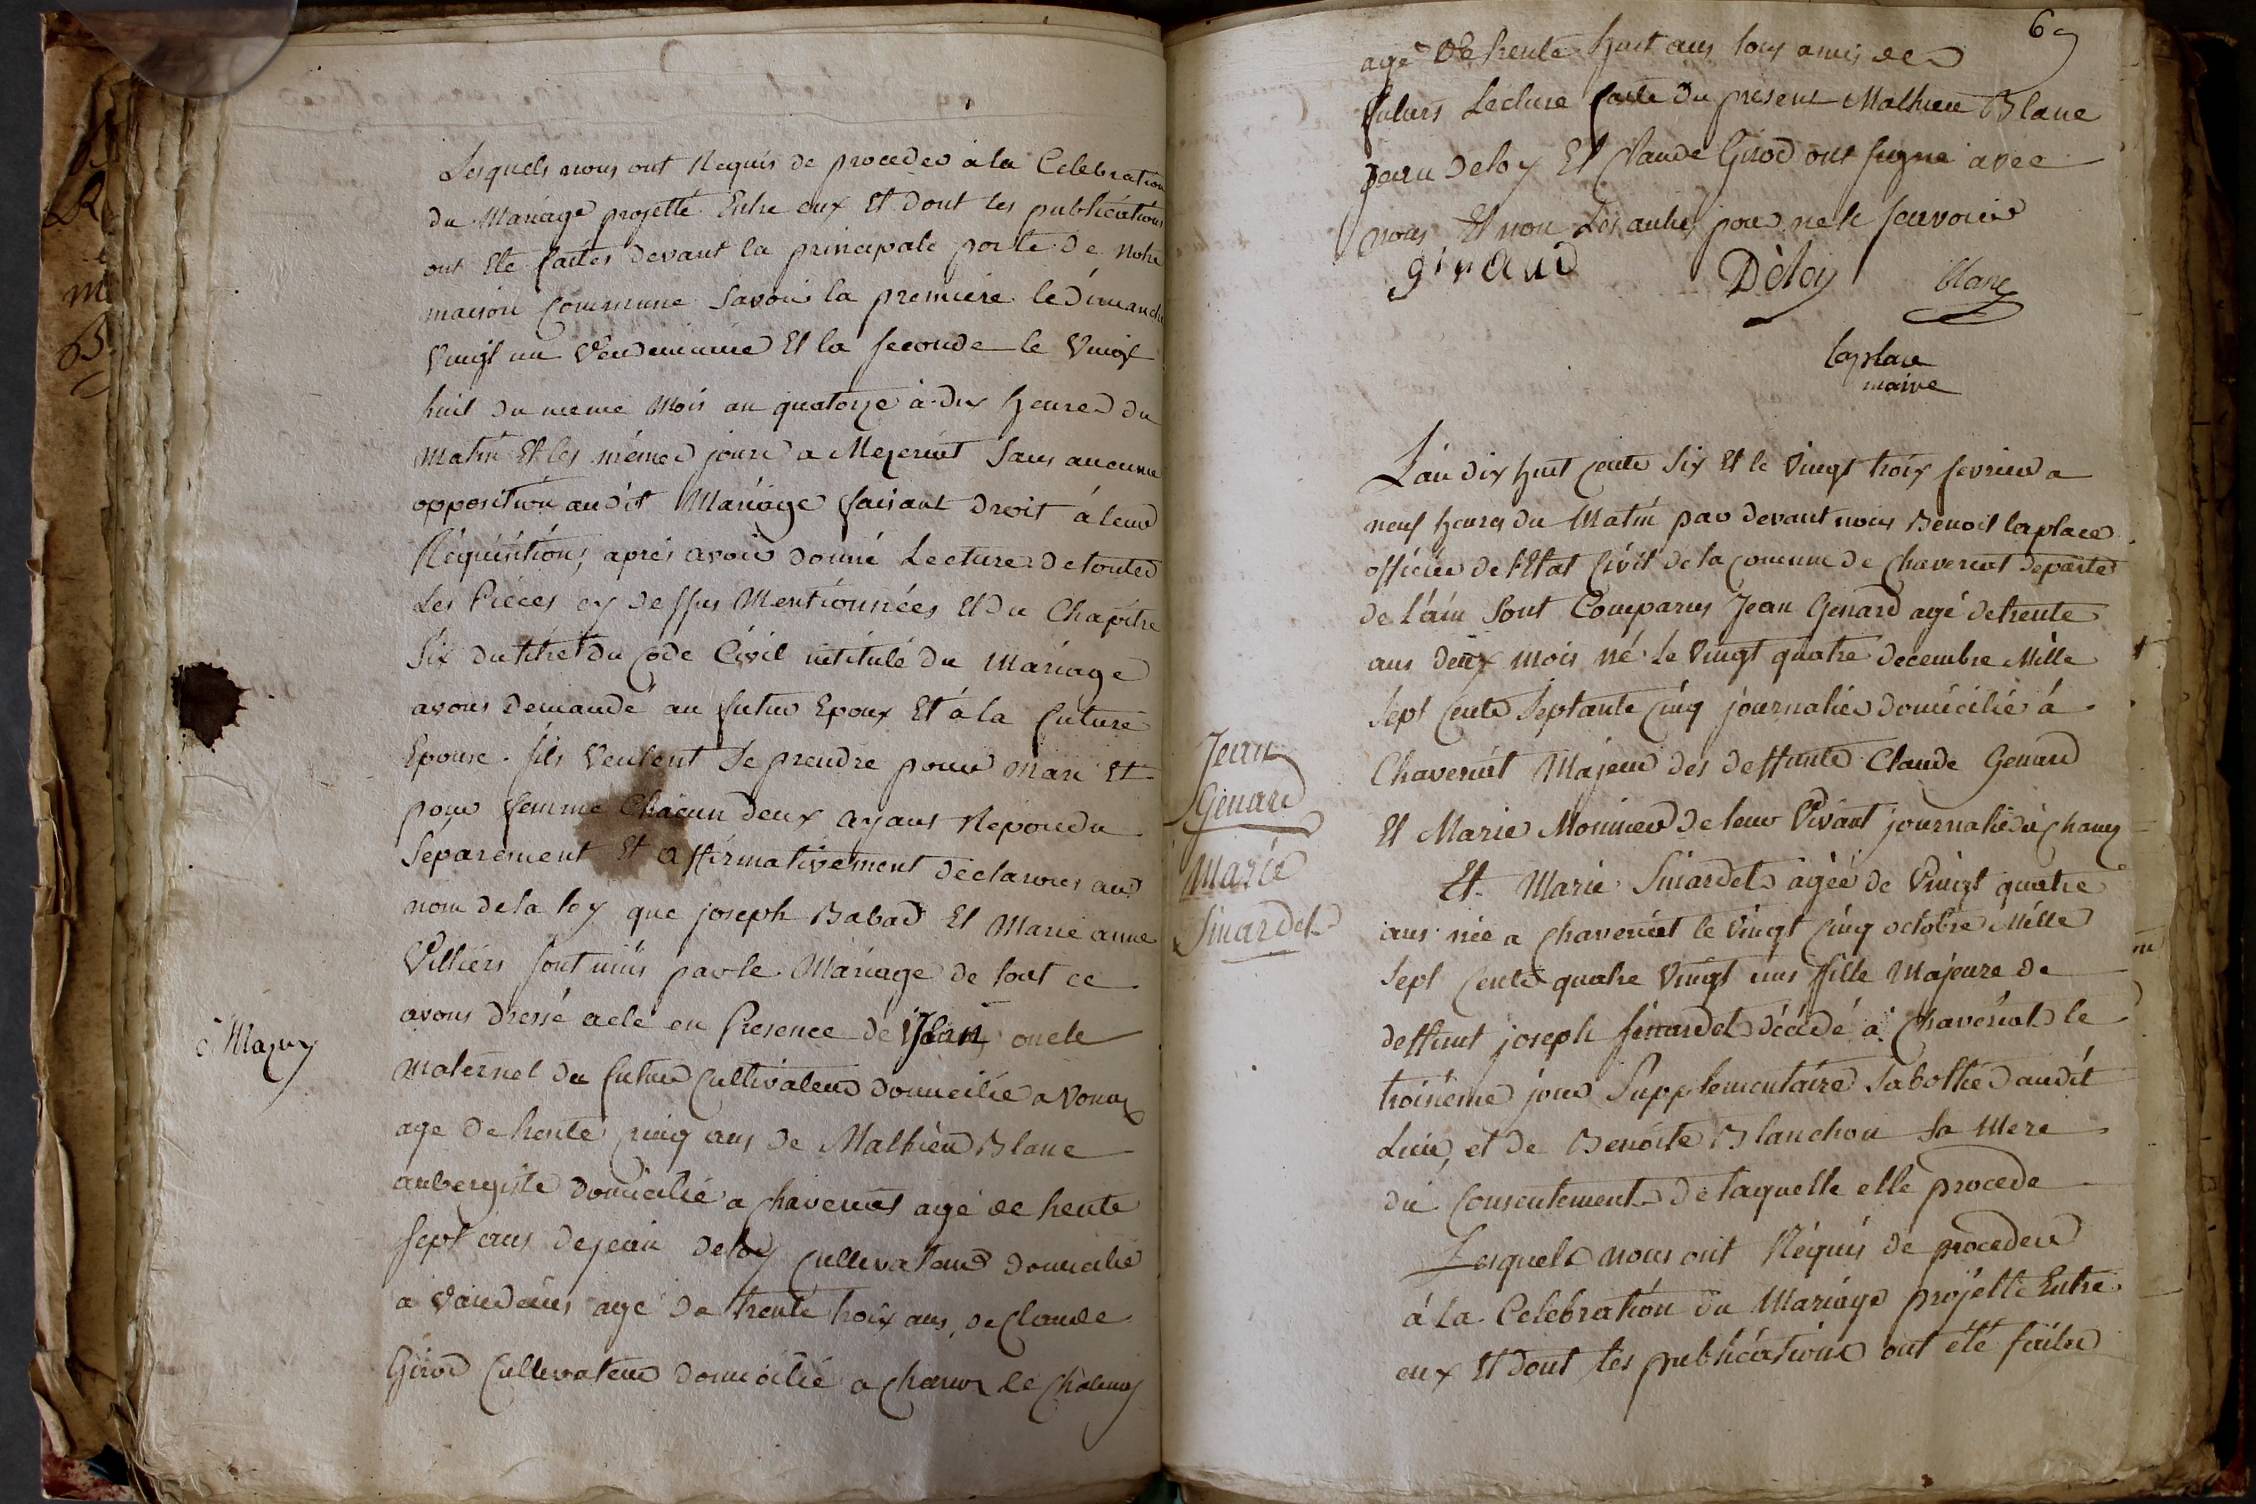 Lesquels nous ont Requis de proceder à la Celebration
du Mariage projetté Entre eux Et Dont les publications
ont Eté faites devant la principale porte de Notre
maison Commune Savoir la premiere le Dimanche
Vingt un Vendemiaire Et la seconde le Vingt
huit du meme Mois an quatorze à dix heures du
Matin Et les mêmes jours a Mezeriat Sans aucune
opposition audit Mariage faisant droit à leur
Réquisitions, aprés avoir donné Lecture de toutes
Les Piéces cy dessus Mentionnées Et du Chapitre
Six du titre du Code Civil intitulé du Mariage
avons Demandé au futur Epoux Et á la future
Epouse s'ils Veulent Se prendre pour Mari Et
pour femme Chacun deux ayant Repondu
Séparement Et affirmativement declarons au
nom de la loy que joseph Babad Et Marie anne
Villiers sont unis par le Mariage de tout ce
avons dressé acte en Presence de Jean oncle
Maternel du futur Cultivateur domicilié a Vonnas
age de trente cinq ans de Mathieu Blanc
aubergiste domicilié a Chaveriat agé de trente
sept ans de jean deloy Cultivateur domicilié
a Vandeins agé de trente trois ans, de Claude
Girod Cultivateur domicilié a
agé de trente huit ans tous amis des
futurs Lecture faite du present Mathieu Blanc
jean deloy Et Claude Girod ont signé avec
nous Et non Les autres pour ne le scavoir
giraud Dèloy blanc
laplace
maire
69
L'an dix huit cents Six Et le Vingt trois fevrier a
neuf heures du Matin par devant nous Benoit laplace
officier de l'Etat Civil de la Commune de Chaveriat
de L'ain Sont Comparus Jean Genard agé de trente
ans deux mois né Le Vingt quatre decembre Mille
Sept Cents Septante Cinq journalier domicilié á
Chaveriat Majeur des deffunts Claude Genard
Et Marie Monnier de leur Vivant
Jean
Genard
Marie
Sinardet
Et Marie Sinardet agée de Vingt quatre
ans née a Chaveriat le Vingt Cinq octobre Mille
Sept Cents quatre Vingt uns fille Majeure de
deffunt joseph Sinardet décédé a Chaveriat le
troisieme jour Supplementaire Sabottier audit
Lieu, et de Benoite Blanchon Sa Mere
du Consentement de laquelle elle procede
Lesquels nous ont Réquis de proceder
á La Celebration du Mariage projétté Entre
eux Et dont les publications ont été faites